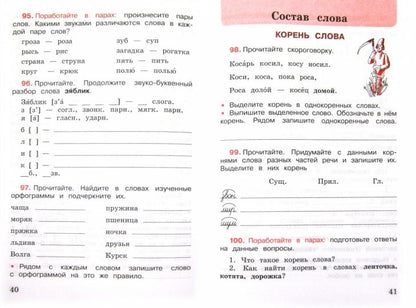 95. Поработайте в парах: произнесите пары
слов. Какими звуками различаются слова в каж-
дой паре слов?
гроза — роза зуб — суп
рысь — рис загадка — рогатка
страна — струна пять — пить
круг — крюк полю — полью
96. Прочитайте. Продолжите звуко-буквенный
разбор слова зяблик.
Зяблик [з'а — слога.
з [з'] — согл., звонк. парн., мягк. парн.
я [а] — гласн., ударн.
б [ ] —
л [ ] —
и [ ] —
к [ ] —
б., зв.
97. Прочитайте. Найдите в словах изученные
орфограммы и подчеркните их.
чаща пружина
моряк пшеница
пряжка ночка
льдина друзья
Волга Курск
• Рядом с каждым словом запишите слово
с орфограммой на это же правило.
40
Состав слова
КОРЕНЬ СЛОВА
98. Прочитайте скороговорку.
Косарь косил, косу носил.
Коси, коса, пока роса,
Роса долой — косец домой.
• Выделите корень в однокоренных словах.
• Выпишите выделенное слово. Обозначьте в нём
корень. Рядом запишите однокоренные слова.
99. Прочитайте. Придумайте с данными кор-
нями слова разных частей речи и запишите их.
Выделите в них корень
Сущ. Прил. Гл.
звон
мир
шум
100. Поработайте в парах: подготовьте ответы
на данные вопросы.
1. Что такое корень слова?
2. Как найти корень в словах ленточка,
котята, дорожка?
41